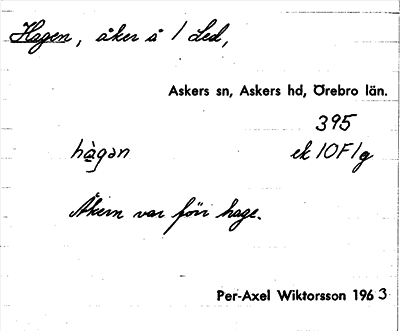 Hagen, åker å 1 Led,
Askers sn, Askers hd, Örebro län.
395
hàgən
ek 10F1g
Åkern var förr hage.
Per-Axel Wiktorsson 1963